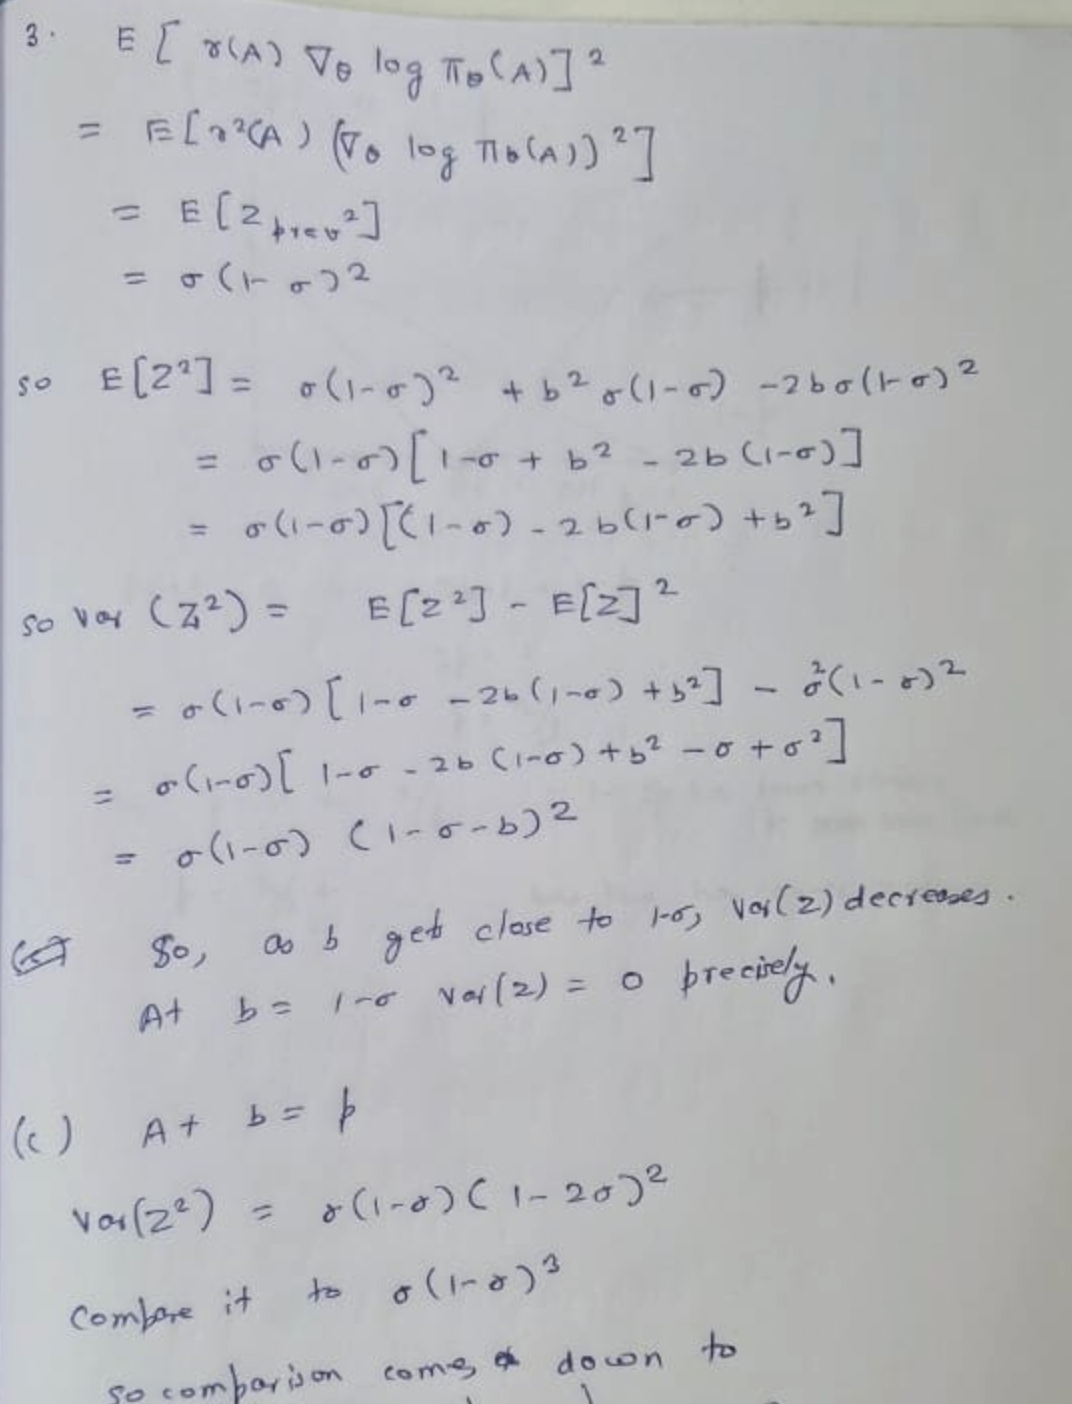 3. E[ r(A) ∇θ log πθ(A)]²
= E[r²(A) (∇θ log πθ(A))²]
= E[Z prev²]
= σ(1-σ)²
so E[Z²] = σ(1-σ)² + b²σ(1-σ) -2bσ(1-σ)²
= σ(1-σ)[1-σ + b² - 2b(1-σ)]
= σ(1-σ)[(1-σ) - 2b(1-σ) + b²]
so var (Z²) = E[Z²] - E[Z]²
= σ(1-σ)[1-σ - 2b(1-σ) + b²] - σ²(1-σ)²
= σ(1-σ)[1-σ - 2b(1-σ) + b² - σ + σ²]
= σ(1-σ) (1-σ-b)²
So, as b get close to 1-σ, var(z) decreases.
At b = 1-σ var(z) = 0 precisely.
(c) At b = p
var(Z²) = σ(1-σ)(1-2σ)²
Compare it to σ(1-σ)³
so comparison comes down to